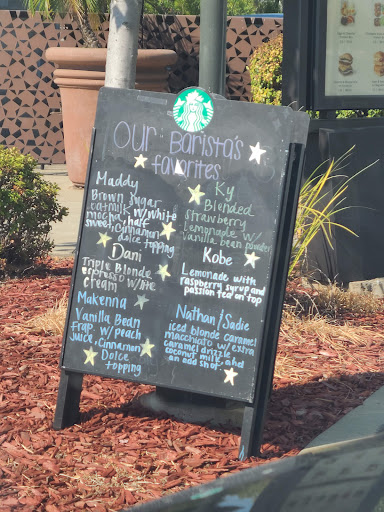 Our Barista's
favorites
Maddy
Brown sugar
oatmilk w/white
mocha, half
sweet w/cinnamon
dolce topping
Dani
Triple Blonde
espresso w/the
cream
Makenna
Vanilla Bean
frap w/ peach
juice, cinnamon
Dolce
topping
Ky
Blended
strawberry
Lemonade w/
vanilla bean powder
Kobe
Lemonade with
raspberry syrup and
passion tea on top
Nathan/Sadie
iced blonde caramel
macchiato w/ extra
caramel drizzle,
coconut milk, and
an add shot